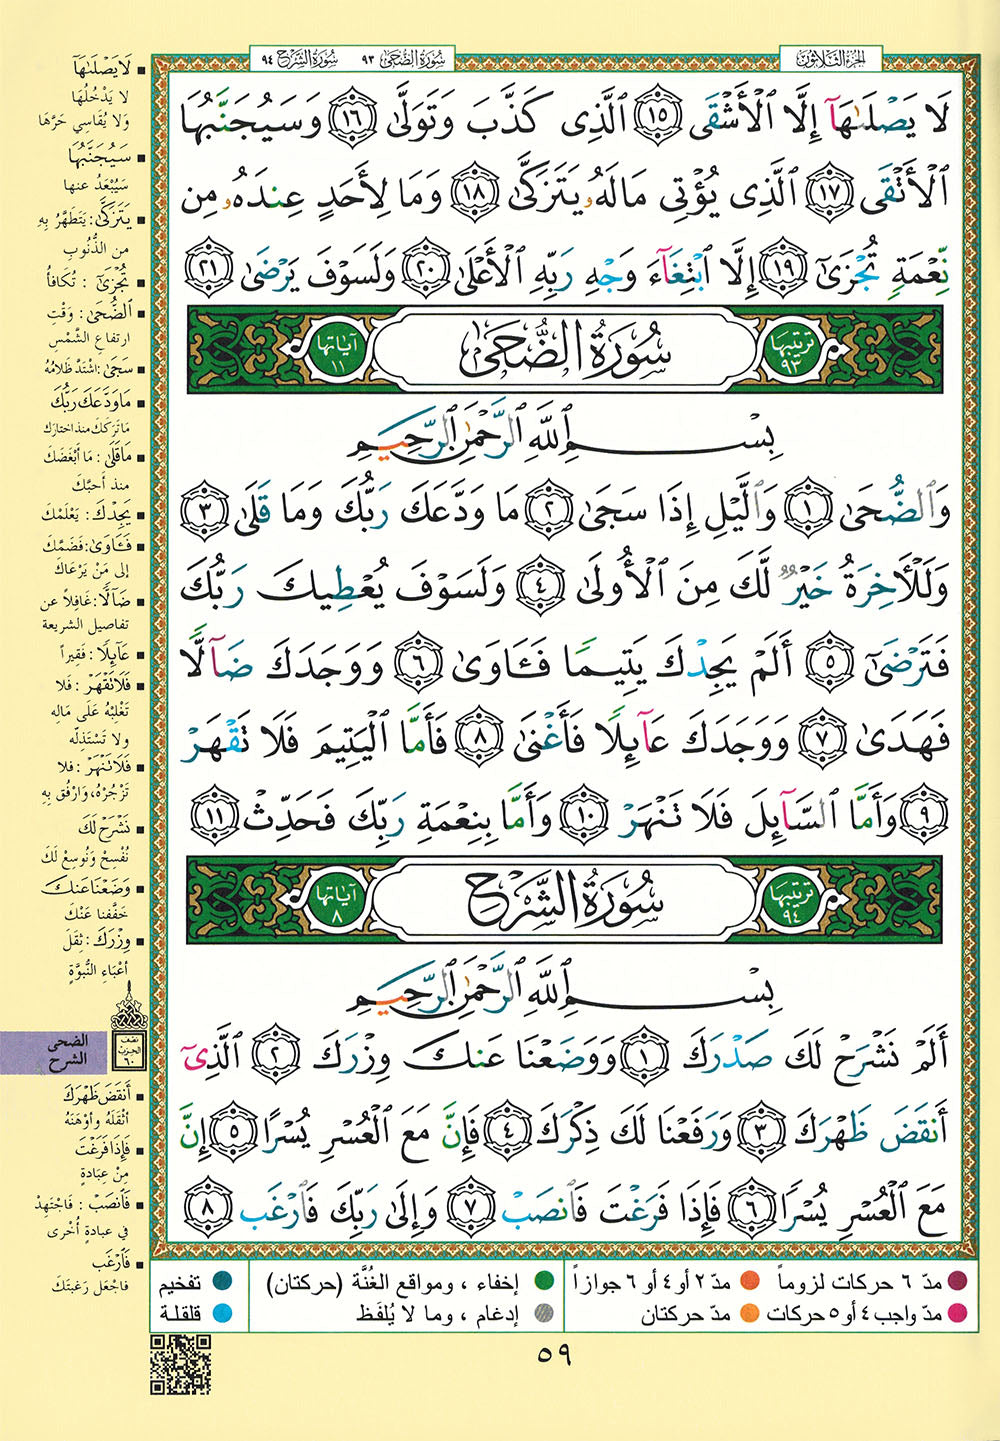 الجزء الثلاثون
سورة الضحى ٩٣
سورة الشرح ٩٤
لَا يَصْلَىٰهَآ إِلَّا ٱلْأَشْقَى ١٥ ٱلَّذِى كَذَّبَ وَتَوَلَّىٰ ١٦ وَسَيُجَنَّبُهَا
ٱلْأَتْقَى ١٧ ٱلَّذِى يُؤْتِى مَالَهُۥ يَتَزَكَّىٰ ١٨ وَمَا لِأَحَدٍ عِندَهُۥ مِن
نِّعْمَةٍ تُجْزَىٰٓ ١٩ إِلَّا ٱبْتِغَآءَ وَجْهِ رَبِّهِ ٱلْأَعْلَىٰ ٢٠ وَلَسَوْفَ يَرْضَىٰ ٢١
ترتيبها ٩٣ سُورَةُ الضُّحَىٰ آياتها ١١
بِسْمِ ٱللَّهِ ٱلرَّحْمَٰنِ ٱلرَّحِيمِ
وَٱلضُّحَىٰ ١ وَٱلَّيْلِ إِذَا سَجَىٰ ٢ مَا وَدَّعَكَ رَبُّكَ وَمَا قَلَىٰ ٣
وَلَلْـَٔاخِرَةُ خَيْرٌ لَّكَ مِنَ ٱلْأُولَىٰ ٤ وَلَسَوْفَ يُعْطِيكَ رَبُّكَ
فَتَرْضَىٰٓ ٥ أَلَمْ يَجِدْكَ يَتِيمًا فَـَٔاوَىٰ ٦ وَوَجَدَكَ ضَآلًّا
فَهَدَىٰ ٧ وَوَجَدَكَ عَآئِلًا فَأَغْنَىٰ ٨ فَأَمَّا ٱلْيَتِيمَ فَلَا تَقْهَرْ
٩ وَأَمَّا ٱلسَّآئِلَ فَلَا تَنْهَرْ ١٠ وَأَمَّا بِنِعْمَةِ رَبِّكَ فَحَدِّثْ ١١
ترتيبها ٩٤ سُورَةُ الشَّرْحِ آياتها ٨
بِسْمِ ٱللَّهِ ٱلرَّحْمَٰنِ ٱلرَّحِيمِ
أَلَمْ نَشْرَحْ لَكَ صَدْرَكَ ١ وَوَضَعْنَا عَنكَ وِزْرَكَ ٢ ٱلَّذِىٓ
أَنقَضَ ظَهْرَكَ ٣ وَرَفَعْنَا لَكَ ذِكْرَكَ ٤ فَإِنَّ مَعَ ٱلْعُسْرِ يُسْرًا ٥ إِنَّ
مَعَ ٱلْعُسْرِ يُسْرًا ٦ فَإِذَا فَرَغْتَ فَٱنصَبْ ٧ وَإِلَىٰ رَبِّكَ فَٱرْغَب ٨
لَا يَصْلَىٰهَآ
لا يَدْخُلُهَا
وَلا يُقَاسِي حَرَّهَا
سَيُجَنَّبُهَا
سَيُبْعَدُ عنها
يَتَزَكَّىٰ : يَتَطَهَّرُ بِهِ
من الذُّنُوبِ
تُجْزَىٰٓ : تُكَافأُ
ٱلضُّحَىٰ : وَقْتِ
ارتفاعِ الشَّمْسِ
سَجَىٰ : اشْتَدَّ ظَلامُهُ
مَا وَدَّعَكَ رَبُّكَ
مَا تَرَكَكَ منذ اختارك
مَا قَلَىٰ : مَا أَبْغَضَكَ
منذ أحبَّكَ
يَجِدْكَ : يَعْلَمْكَ
فَـَٔاوَىٰ : فَضَمَّكَ
إلى مَنْ يَرْعَاكَ
ضَآلًّا : غَافِلاً عن
تفاصيل الشريعة
عَآئِلًا : فَقِيراً
فَلَا تَقْهَرْ : فلا
تَغْلِبْهُ عَلَى مَالِهِ
ولا تَسْتَذِلَّه
فَلَا تَنْهَرْ : فلا
تَزْجُرْهُ، وَارْفُق بِهِ
نَشْرَحْ لَكَ
نُفْسِحْ وَنُوسِعْ لَكَ
وَضَعْنَا عَنكَ
خَفَّفنا عَنْكَ
وِزْرَكَ : ثِقَلَ
أعْبَاءِ النُّبُوَّةِ
نصف الحزب ٦٠
الضحى
الشرح
أَنقَضَ ظَهْرَكَ
أثْقَلَهُ وأوْهَنَهُ
فَإِذَا فَرَغْتَ
مِنْ عِبَادَةٍ
فَٱنصَبْ : فَاجْتَهِدْ
في عبادةٍ أُخْرى
فَٱرْغَب
فاجْعَل رَغبَتَكَ
مدّ ٦ حركات لزوماً
مدّ ٢ أو ٤ أو ٦ جوازاً
إخفاء ، ومواقع الغُنَّة (حركتان)
تفخيم
مدّ واجب ٤ أو ٥ حركات
مدّ حركتان
إدغام ، وما لا يُلفَظ
قلقلة
٥٩